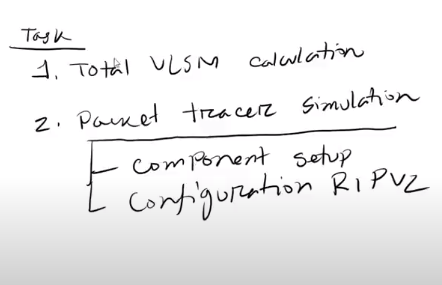 Task
1. Total VLSM calculation
2. Packet tracer simulation
component setup
Configuration RIPV2